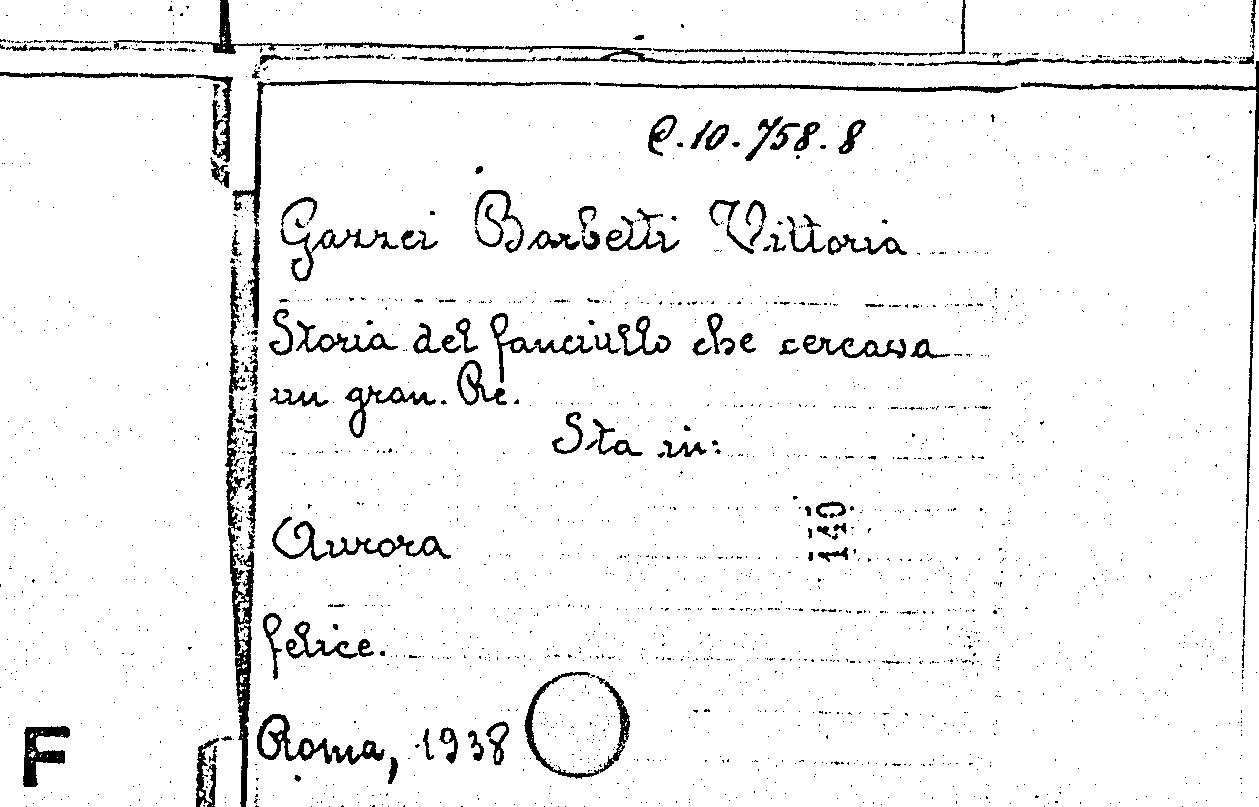 C.10.758.8
Gazzei Barbetti Vittoria
Storia del fanciullo che cercava
un gran. Re.
Sta in:
140
Aurora
felice.
Roma, 1938
F